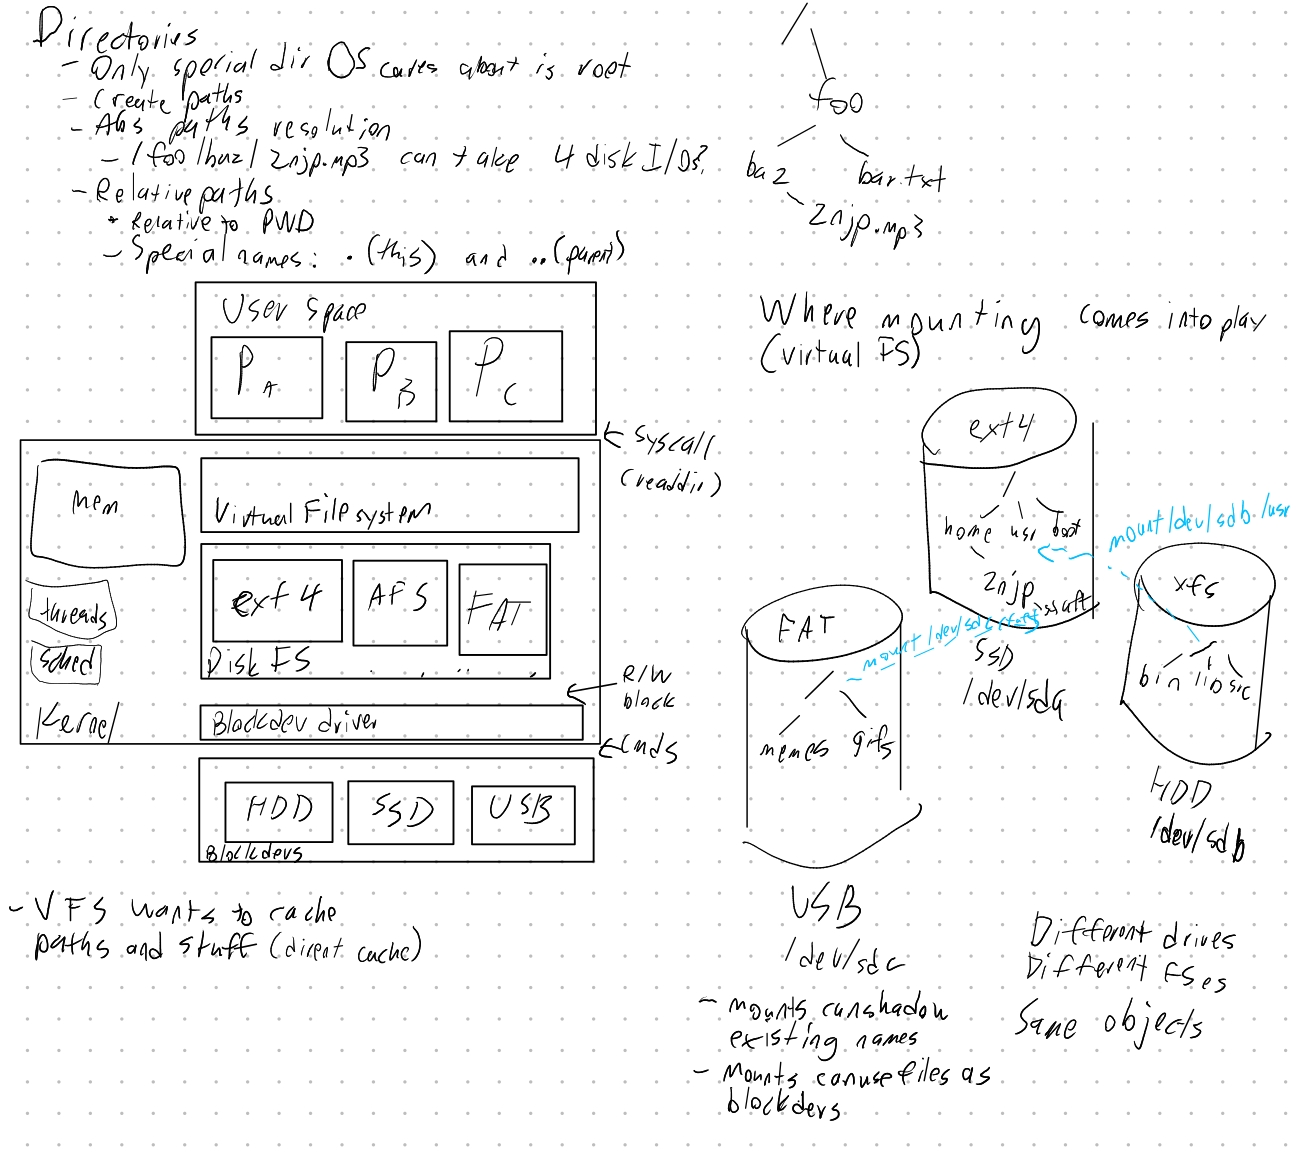 Directories
- Only special dir OS cares about is root
- Create paths
- Abs paths resolution
- /foo/baz/2njp.mp3 can take 4 disk I/Os?
- Relative paths
* Relative to PWD
- Special names: . (this) and .. (parent)
/
foo
baz
bar.txt
2njp.mp3
User space
PA
PB
PC
← syscall
(readdir)
mem
Virtual Filesystem
threads
sched
ext4
AFS
FAT
Disk FS
R/W
block
Kernel
Blockdev driver
← cmds
HDD
SSD
USB
Blockdevs
- VFS wants to cache
paths and stuff (dirent cache)
Where mounting comes into play
(virtual FS)
ext4
home usr boot
2njp
SSD
/dev/sda
mount /dev/sdb /usr
xfs
bin lib src
HDD
/dev/sdb
FAT
mount /dev/sdc
memes gifs
USB
/dev/sdc
- mounts can shadow
existing names
- Mounts can use files as
blockdevs
Different drives
Different FSes
Same objects